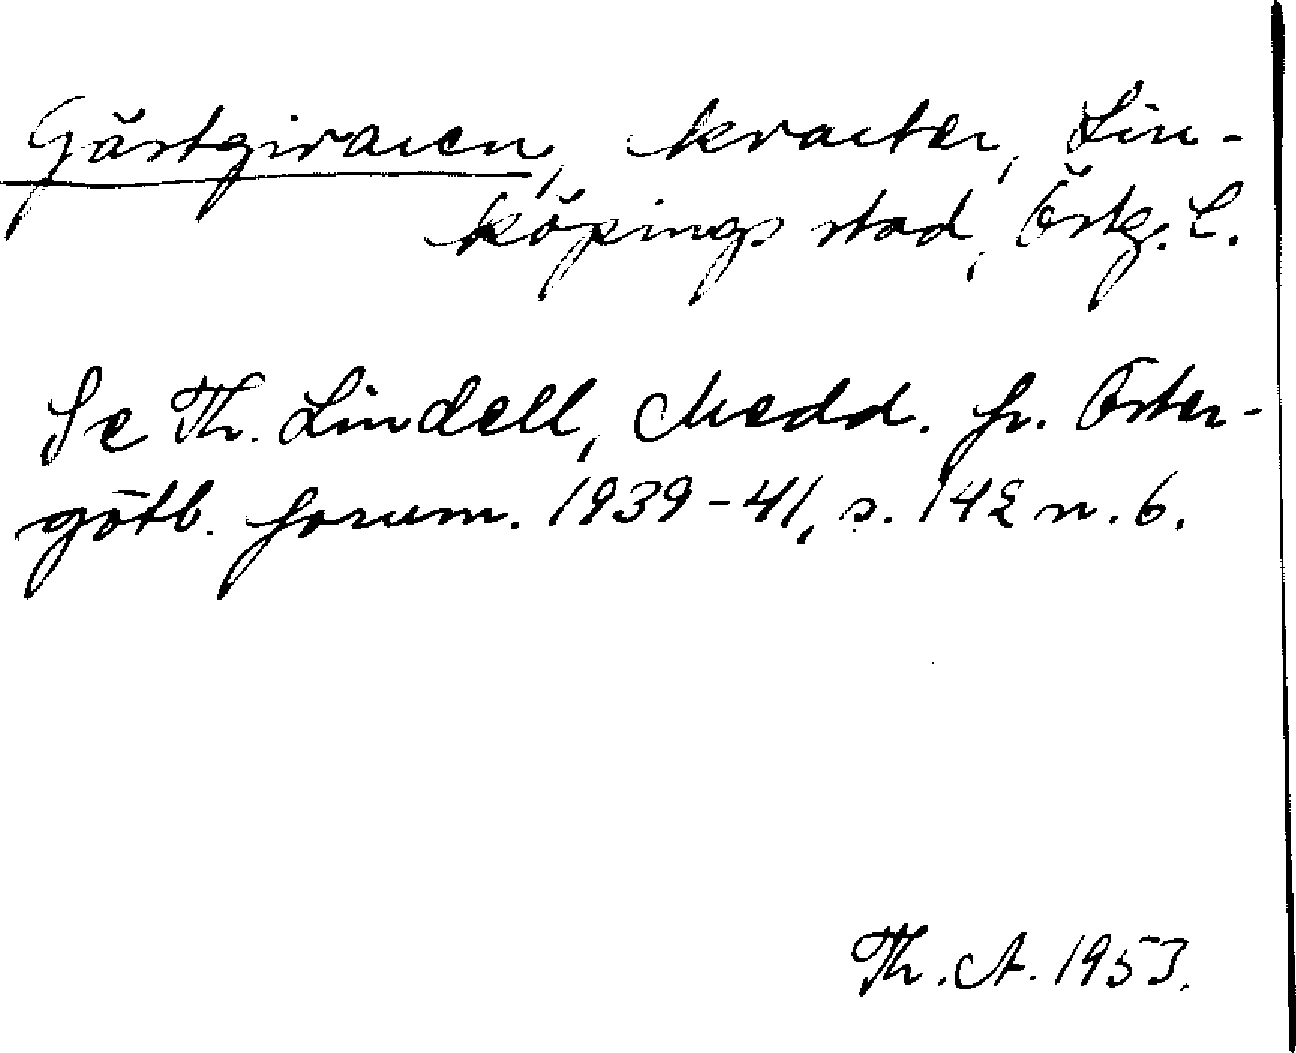 Gästgivaren, kvarter, Lin-
köpings stad, Östg. l.
Se Th. Lindell, Medd. fr. Öster-
götl. fornm. 1939-41, s. 142 n. 6.
Th. A. 1953.